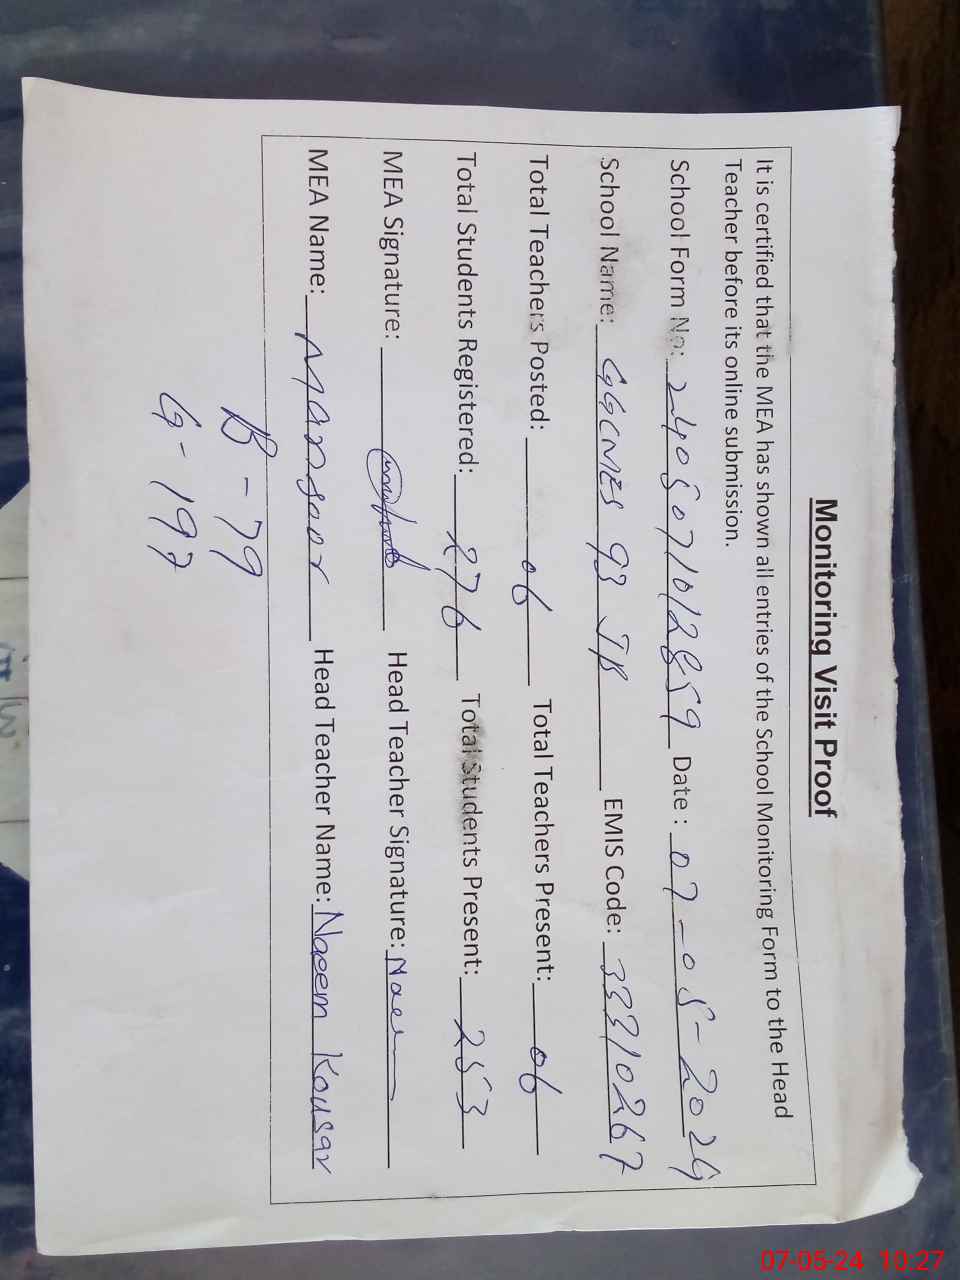 Monitoring Visit Proof
It is certified that the MEA has shown all entries of the School Monitoring Form to the Head
Teacher before its online submission.
School Form No: 2405071012859 Date : 07-05-2024
School Name: GGCMES 93 JB EMIS Code: 33310267
Total Teachers Posted: 06 Total Teachers Present: 06
Total Students Registered: 276 Total Students Present: 253
MEA Signature: Head Teacher Signature: Naeem
MEA Name: Mansoor Head Teacher Name: Naeem Kousar
B - 79
G - 197
07-05-24 10:27